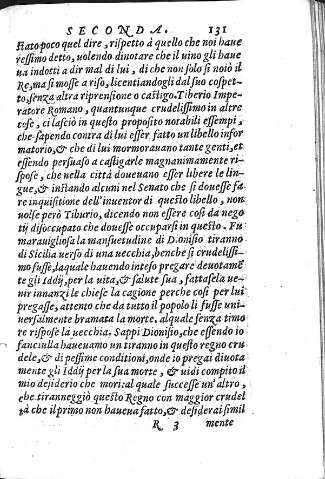 SECONDA. 131
stato poco quel dire, rispetto à quello che noi haue
ressimo detto, uolendo dinotare che il uino gli haue
ua indotti a dir mal di lui, di che non solo si noiò il
Re, ma si mosse a riso, licentiandogli dal suo cospet-
to, senza altra riprensione o castigo. Tiberio Impe-
ratore Romano, quantunque crudelissimo in altre
cose, ci lasciò in questo proposito notabili essempi,
che sapendo contra di lui esser fatto un libello infor
matorio, & che di lui mormorauano tante genti, et
essendo persuaso a castigarle magnanimamente ri-
spose, che nella città doueuano esser libere le lin-
gue, & instando alcuni nel Senato che si douesse fa
re inquisitione dell'inuentor di questo libello, non
uolse però Tiburio, dicendo non essere così da nego
tij disoccupato che douesse occuparsi in questo. Fu
marauigliosa la mansuetudine di Dionisio tiranno
di Sicilia uerso di una uecchia, benche si crudelissi-
mo fusse, laquale hauendo inteso pregare deuotamē
te gli Iddij, per la uita, & salute sua, fattasela ue-
nir innanzi le chiese la cagione perche così per lui
pregasse, attento che da tutto il popolo li fusse uni-
uersalmente bramata la morte. alquale senza timo
re rispose la uecchia. Sappi Dionisio, che essendo io
fanciulla haueuamo un tiranno in questo regno cru
dele, & di pessime conditioni, onde io pregai diuota
mente gli Iddij per la sua morte, & uidi compito il
mio desiderio che morì: al quale successe un'altro,
che tiranneggiò questo Regno con maggior crudel
tà che il primo non haueua fatto, & desiderai simil
R 3 mente